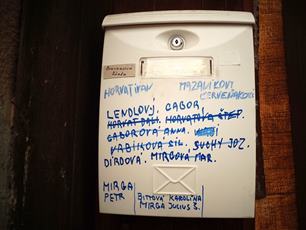 HORVAT IVAN MAZALIKOVI
ČERVEŇÁKOVI
LENDLOVÝ, GABOR,
HORVAT DALI. HORVATOVA ŠTEF.
GABOROVÁ ANNA.
VABLIKOVÁ SIL. SUCHY JOZ.
DIRDOVÁ. MIRGOVÁ MAR.
MIRGA
PETR
BITTOVÁ KAROLÍNA
MIRGA JULIUS Š.